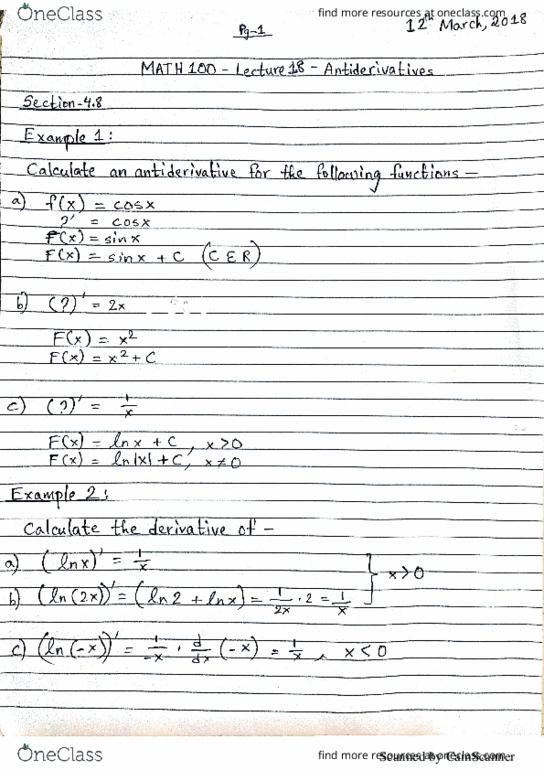 OneClass
find more resources at oneclass.com
Pg-1
12th March, 2018
MATH 100 - Lecture 18 - Antiderivatives
Section-4.8
Example 1:
Calculate an antiderivative for the following functions -
a) f(x) = cosx
?' = cosx
F(x) = sinx
F(x) = sinx + C (C ∈ R)
b) (?)' = 2x
F(x) = x²
F(x) = x² + C
c) (?)' = 1/x
F(x) = lnx + C, x>0
F(x) = ln|x| + C, x≠0
Example 2:
Calculate the derivative of -
a) (lnx)' = 1/x
b) (ln(2x))' = (ln2 + lnx) = 1/2x · 2 = 1/x } x>0
c) (ln(-x))' = 1/-x · d/dx (-x) = 1/x, x<0
OneClass
find more resources at oneclass.com
Scanned by CamScanner